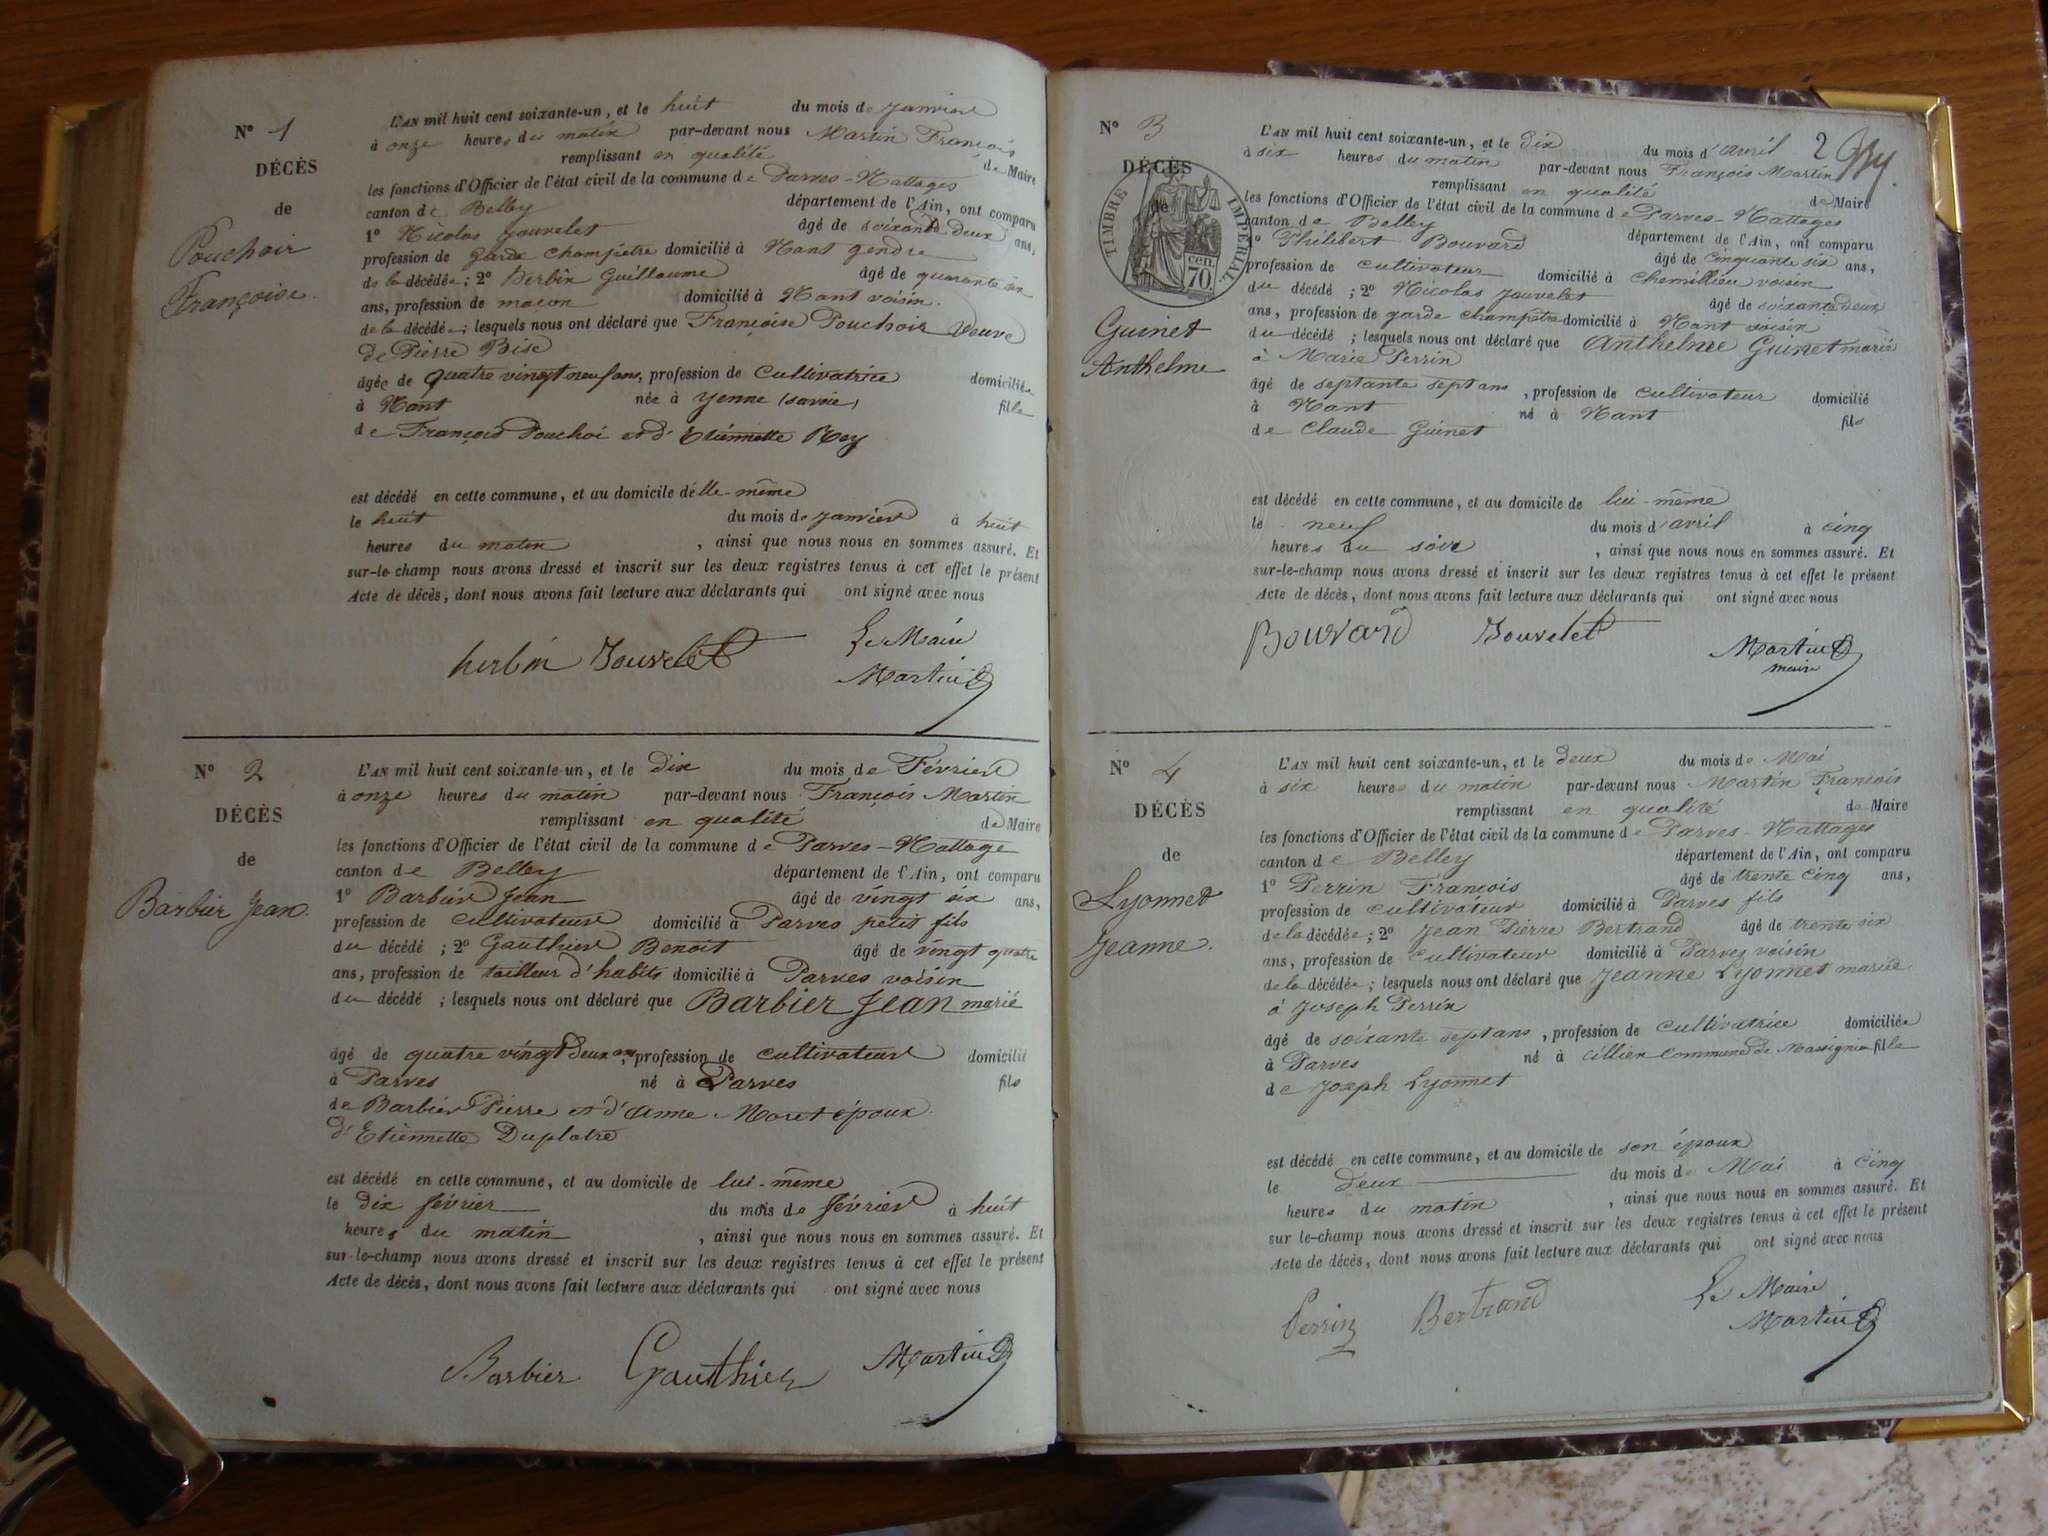 N° 1
DÉCÈS
de
Pouchoir
Françoise.
L'AN mil huit cent soixante-un, et le huit du mois de janvier
à onze heures du matin par-devant nous Martin François
remplissant en qualité de Maire
les fonctions d'Officier de l'état civil de la commune de Parves-Nattages
canton de Belley département de l'Ain, ont comparu
1° Nicolas Jouvelet âgé de soixante deux ans,
profession de garde champêtre domicilié à Nant gendre
de la décédée; 2° herbin Guillaume âgé de quarante six
ans, profession de maçon domicilié à Nant voisin.
de la décédée; lesquels nous ont déclaré que Françoise Pouchoir veuve
de Pierre Bise
âgée de quatre vingt neuf ans, profession de cultivatrice domiciliée
à Nant née à Yenne (savoie) fille
de François Pouchoi et d'Etiennette Rey
est décédé en cette commune, et au domicile d'elle-même
le huit du mois de janvier à huit
heures du matin, ainsi que nous nous en sommes assuré. Et
sur-le-champ nous avons dressé et inscrit sur les deux registres tenus à cet effet le présent
Acte de décès, dont nous avons fait lecture aux déclarants qui ont signé avec nous
herbin Jouvelet Le Maire
Martin
N° 2
DÉCÈS
de
Barbier Jean.
L'AN mil huit cent soixante-un, et le dix du mois de Février
à onze heures du matin par-devant nous François Martin
remplissant en qualité de Maire
les fonctions d'Officier de l'état civil de la commune de Parves-Nattage
canton de Belley département de l'Ain, ont comparu
1° Barbier Jean âgé de vingt six ans,
profession de cultivateur domicilié à Parves petit fils
du décédé; 2° Gauthier Benoit âgé de vingt quatre
ans, profession de tailleur d'habits domicilié à Parves voisin
du décédé; lesquels nous ont déclaré que Barbier Jean marié
âgé de quatre vingt deux ans, profession de cultivateur domicilié
à Parves né à Parves fils
de Barbier Pierre et d'anne Moret époux
d'Etiennette Duplatre
est décédé en cette commune, et au domicile de lui-même
le dix février du mois de février à huit
heures du matin, ainsi que nous nous en sommes assuré. Et
sur-le-champ nous avons dressé et inscrit sur les deux registres tenus à cet effet le présent
Acte de décès, dont nous avons fait lecture aux déclarants qui ont signé avec nous
Barbier Gauthier Martin
N° 3
DÉCÈS
de
TIMBRE IMPÉRIAL
70 cen.
Guinet
Anthelme
2
L'AN mil huit cent soixante-un, et le dix du mois d'avril
à six heures du matin par-devant nous François Martin
remplissant en qualité de Maire
les fonctions d'Officier de l'état civil de la commune de Parves-Nattages
canton de Belley département de l'Ain, ont comparu
1° Philibert Bouvard âgé de cinquante six ans,
profession de cultivateur domicilié à Chemillieu voisin
du décédé; 2° Nicolas Jouvelet âgé de soixante deux
ans, profession de garde champêtre domicilié à Nant voisin
du décédé; lesquels nous ont déclaré que Anthelme Guinet marié
à Marie Perrin
âgé de septante sept ans, profession de cultivateur domicilié
à Nant né à Nant fils
de Claude Guinet
est décédé en cette commune, et au domicile de lui-même
le neuf du mois d'avril à cinq
heures du soir, ainsi que nous nous en sommes assuré. Et
sur-le-champ nous avons dressé et inscrit sur les deux registres tenus à cet effet le présent
Acte de décès, dont nous avons fait lecture aux déclarants qui ont signé avec nous
Bouvard Jouvelet Martin
maire
N° 4
DÉCÈS
de
Lyonnet
Jeanne.
L'AN mil huit cent soixante-un, et le deux du mois de Mai
à six heures du matin par-devant nous Martin François
remplissant en qualité de Maire
les fonctions d'Officier de l'état civil de la commune de Parves-Nattages
canton de Belley département de l'Ain, ont comparu
1° Perrin François âgé de trente cinq ans,
profession de cultivateur domicilié à Parves fils
de la décédée; 2° Jean Pierre Bertrand âgé de trente six
ans, profession de cultivateur domicilié à Parves voisin
de la décédée; lesquels nous ont déclaré que Jeanne Lyonnet mariée
à Joseph Perrin
âgé de soixante sept ans, profession de cultivatrice domiciliée
à Parves né à cillien commune de Massignieu fille
de Joseph Lyonnet
est décédé en cette commune, et au domicile de son époux
le deux du mois de Mai à cinq
heures du matin, ainsi que nous nous en sommes assuré. Et
sur le-champ nous avons dressé et inscrit sur les deux registres tenus à cet effet le présent
Acte de décès, dont nous avons fait lecture aux déclarants qui ont signé avec nous
Perrin Bertrand Le Maire
Martin